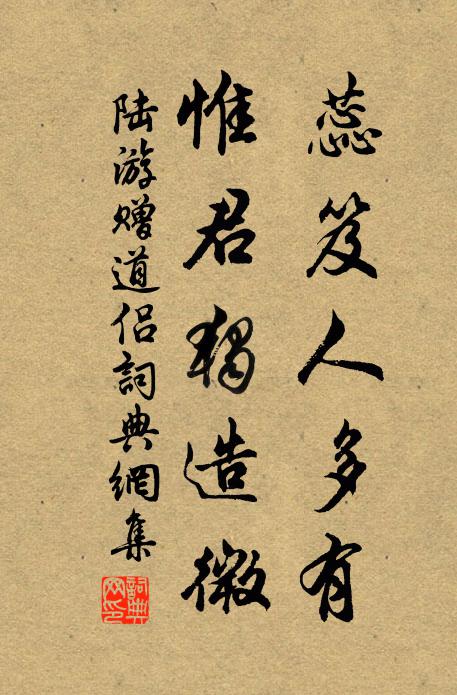 蕊笈人多有
惟君獨造微
陸游贈道侶詞典網集
詞典網印